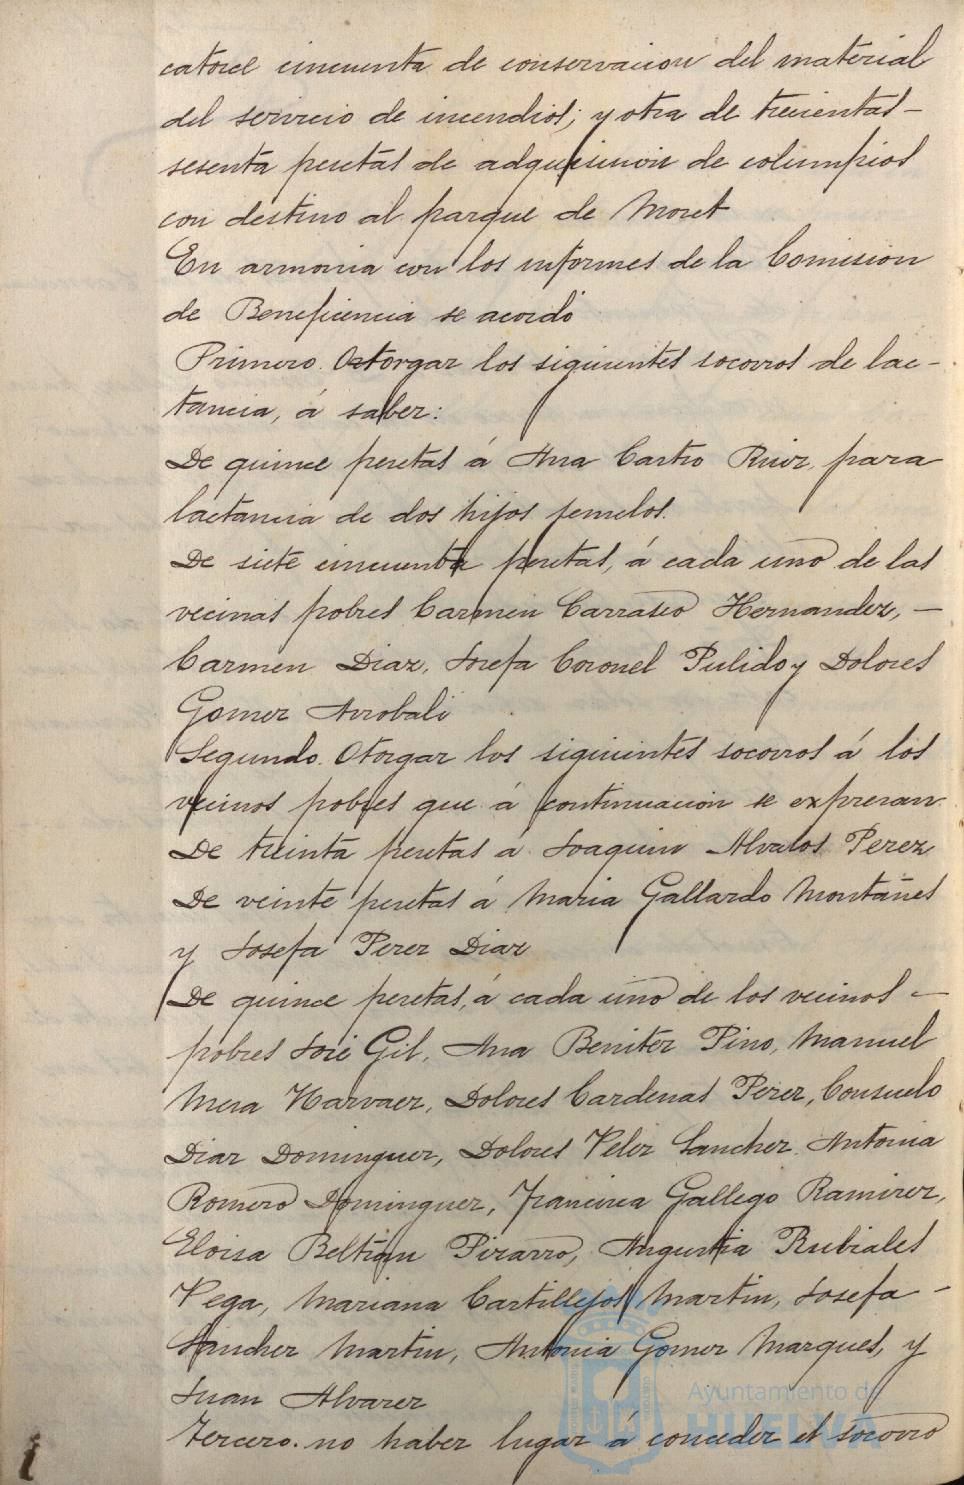 catorce cincuenta de conservacion del material
del servicio de incendios; y otra de trecientas-
sesenta pesetas de adquisicion de columpios
con destino al parque de Moret
En armonia con los informes de la Comision
de Beneficencia se acordó
Primero. Otorgar los siguientes socorros de lac-
tancia, á saber:
De quince pesetas á Ana Castro Ruiz, para
lactancia de dos hijos jemelos.
De siete cincuenta pesetas, á cada uno de las
vecinas pobres Carmen Carrasco Hernandez,-
Carmen Diaz, Josefa Coronel Pulido y Dolores
Gomez Arrobali
Segundo. Otorgar los siguientes socorros á los
vecinos pobres que á continuacion se expresan
De treinta pesetas á Joaquin Alvalos Perez
De veinte pesetas á Maria Gallardo Montañes
y Josefa Perez Diaz
De quince pesetas, á cada uno de los vecinos -
pobres José Gil, Ana Benitez Pino, Manuel
Mesa Narvaez, Dolores Cardenas Perez, Consuelo
Diaz Dominguez, Dolores Velez Sanchez. Antonia
Romero Dominguez, Francisca Gallego Ramirez,
Eloisa Beltran Pizarro, Angustia Rubiales
Vega, Mariana Castillejos Martin, Josefa -
Sanchez Martin, Antonia Gomez Marques, y
Juan Alvarez
Tercero. no haber lugar á conceder el socorro
Ayuntamiento de
HUELVA